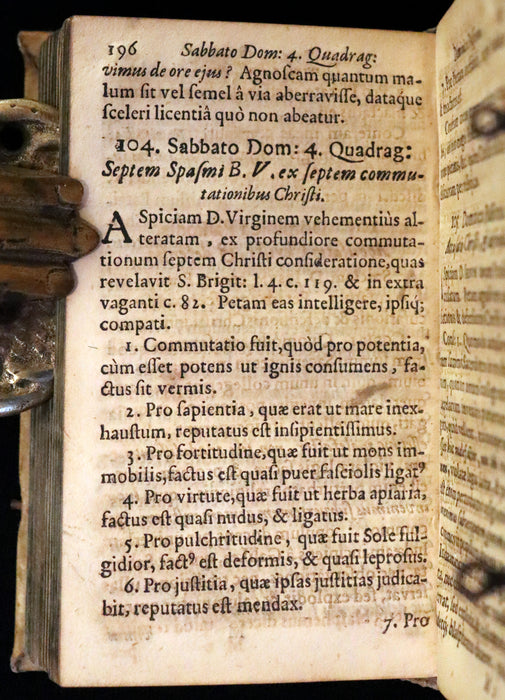 196 Sabbato Dom: 4. Quadrag:
vimus de ore ejus? Agnoſcam quantum ma-
lum ſit vel ſemel â via aberraviſſe, dataque
ſceleri licentiâ quò non abeatur.
104. Sabbato Dom: 4. Quadrag:
Septem Spaſmi B. V. ex ſeptem commu-
tationibus Chriſti.
ASpiciam D. Virginem vehementiùs al-
teratam, ex profundiore commuta-
tionum ſeptem Chriſti conſideratione, quas
revelavit S. Brigit: l. 4. c. 119. & in extra
vaganti c. 82. Petam eas intelligere, ipſiq;
compati.
1. Commutatio fuit, quòd pro potentia,
cùm eſſet potens ut ignis conſumens, fa-
ctus ſit vermis.
2. Pro ſapientia, quæ erat ut mare inex-
hauſtum, reputatus eſt inſipientiſſimus.
3. Pro fortitudine, quæ fuit ut mons im-
mobilis, factus eſt quaſi puer faſciolis ligatꝰ
4. Pro virtute, quæ fuit ut herba apiaria,
factus eſt quaſi nudus, & ligatus.
5. Pro pulchritudine, quæ fuit Sole ful-
gidior, factꝰ eſt deformis, & quaſi leproſus.
6. Pro juſtitia, quæ ipſas juſtitias judica-
bit, reputatus eſt mendax.
7. Pro